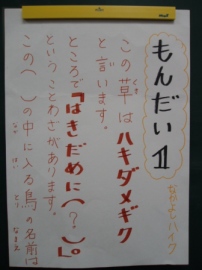 もんだい1
なかよしハイク
くさ
この草はハキダメギク
と言います。
ところで『はきだめに(？)』。
ということわざがあります。
この( )の中に入る鳥の名前は
とり
なまえ